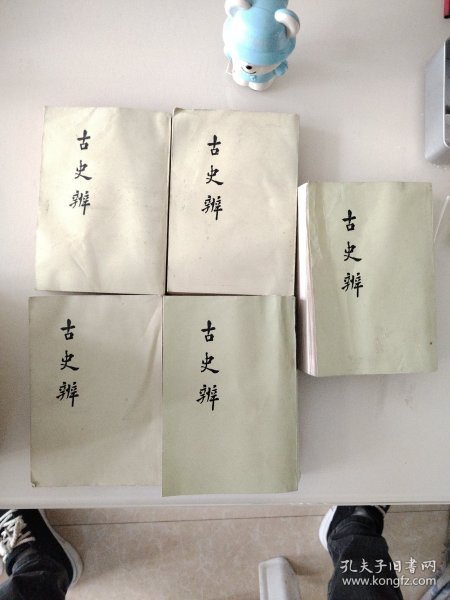 古史辨
古史辨
古史辨
古史辨
古史辨
孔夫子旧书网
www.kongfz.com